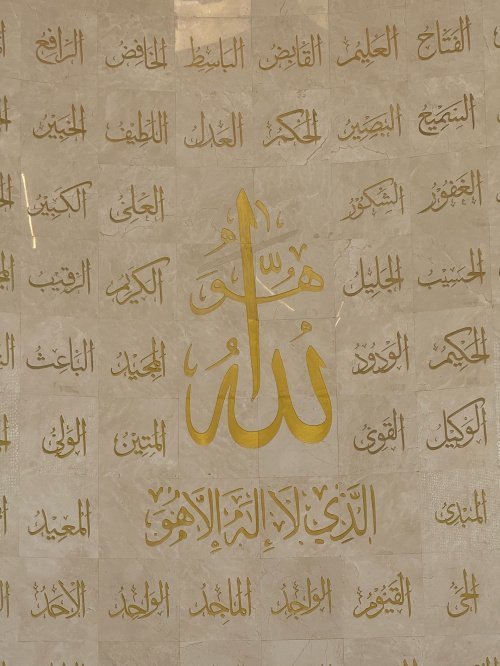 الفتاح العليم القابض الباسط الخافض الرافع
السميع البصير الحكم العدل اللطيف الخبير
الغفور الشكور العلي الكبير
هو الله
الحسيب الجليل الكريم الرقيب
الحكيم الودود المجيد الباعث
الوكيل القوي المتين الولي
الذي لا إله إلا هو
المبدئ المعيد
الحي القيوم الواجد الماجد الواحد الأحد